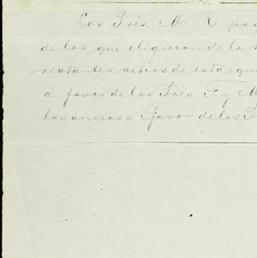 Los Trés. M. R. pag
de los, que eligieron de la
restantes sitios de esta qu
á favor de los Trés. F. y M
los anexos a favor de los T